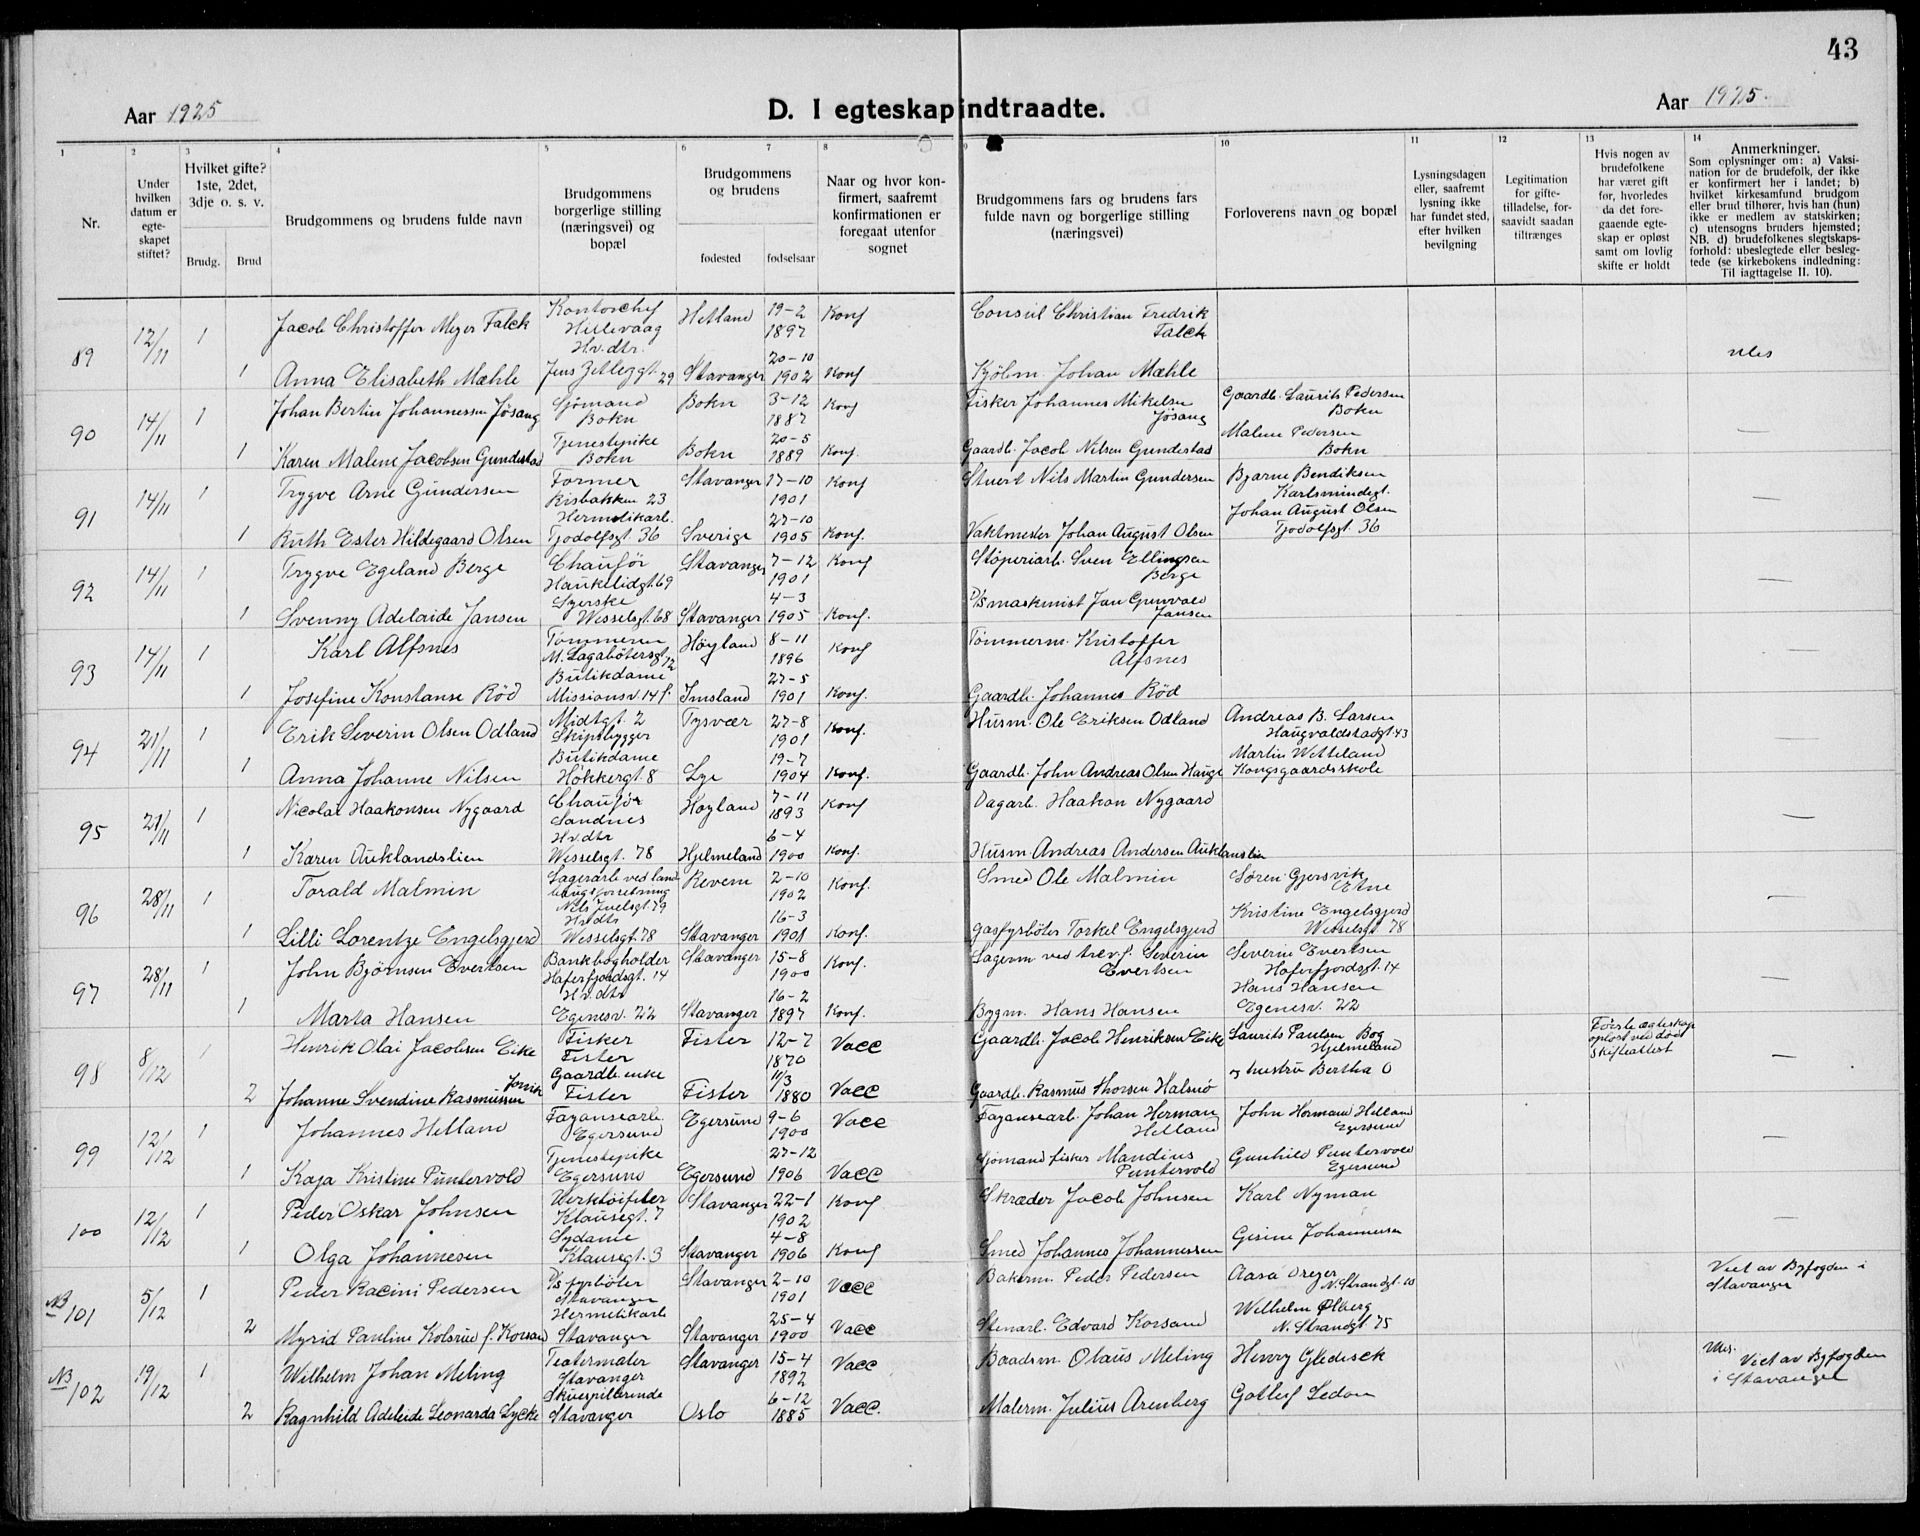 43
Aar 1925
D. I egteskap indtraadte.
Aar 1925.
1 2 3 4 5 6 7 8 9 10 11 12 13 14
Nr.
Under hvilken datum er egteskapet stiftet?
Hvilket gifte? 1ste, 2det, 3dje o. s. v.
Brudg. Brud
Brudgommens og brudens fulde navn
Brudgommens borgerlige stilling (næringsvei) og bopæl
Brudgommens og brudens
fødested fødselsaar
Naar og hvor konfirmert, saafremt konfirmationen er foregaat utenfor sognet
Brudgommens fars og brudens fars fulde navn og borgerlige stilling (næringsvei)
Forloverens navn og bopæl
Lysningsdagen eller, saafremt lysning ikke har fundet sted, efter hvilken bevilgning
Legitimation for giftetilladelse, forsaavidt saadan tiltrænges
Hvis nogen av brudefolkene har været gift før, hvorledes da det foregaaende egteskap er opløst samt om lovlig skifte er holdt
Anmerkninger.
Som oplysninger om: a) Vaksination for de brudefolk, der ikke er konfirmert her i landet; b) hvilket kirkesamfund brudgom eller brud tilhører, hvis han (hun) ikke er medlem av statskirken; c) utensogns bruders hjemsted; NB. d) brudefolkenes slegtskapsforhold: ubeslegtede eller beslegtede (se kirkebokens indledning: Til iagttagelse II. 10).
89 12/11 1 Jacob Christoffer Meyer Falck Kontorchef Hillevaag Hetland 19-2 1897 Konf Consul Christian Fredrik Falck
1 Anna Elisabeth Mæhle Hv. dtr. Jens Zetl.gt. 29 Stavanger 20-10 1902 Konf Kjøbm. Johan Mæhle
90 14/11 1 Johan Bertin Johannessen Jøsang Sjømand Bokn Bokn 3-12 1887 Konf Fisker Johannes Mikelsen Jøsang Gaardb. Laurits Pedersen Bokn —
1 Karen Malene Jacobsen Gundestad Tjenestepike Bokn Bokn 20-5 1889 Konf. Gaardb. Jacob Nilsen Gundestad Malene Pedersen Bokn
91 14/11 1 Trygve Arne Gundersen Former Risbakken 23 Stavanger 17-10 1901 Konf Stuert Nils Martin Gundersen Bjarne Bendiksen Karlsmindegt. —
1 Ruth Ester Hildegaard Olsen Hermetikarb. Tjodolfsgt 36 Sverige 27-10 1905 Konf. Vaktmester Johan August Olsen Johan August Olsen Tjodolfsgt. 36
92 14/11 1 Trygve Egeland Berge Chaufør Haukelidgt. 69 Stavanger 7-12 1901 Konf Støperiarb. Sven Ellingsen Berge —
1 Svenny Adelaide Jansen Syerske Wesselsgt. 68 Stavanger 4-3 1905 Konf. D/S maskinist Jan Grunvald Jansen
93 14/11 1 Karl Alfsnes Tømmerm M. Lagabøtersgt 12 Høyland 8-11 1896 Konf Tømmerm. Kristoffer Alfsnes —
1 Josefine Konstanse Rød Butikdame Missionsv. 14 f. Imsland 27-5 1901 Konf. Gaardb. Johannes Rød
94 21/11 1 Erik Severin Olsen Odland Midtgt. 2 Skipsbygger Tysvær 27-8 1901 Konf. Husm. Ole Eriksen Odland Andreas B. Larsen Haugvaldstadgt. 43 —
1 Anna Johanne Nilsen Butikdame Høkkergt. 8 Lye 19-7 1904 Konf. Gaardb. John Andreas Olsen Hauge Martin Vetteland Kongsgaardsskole
95 21/11 1 Nicolai Haakonsen Nygaard Chaufør Sandnes Høyland 7-11 1893 Konf Dagarb. Haakon Nygaard —
1 Karen Auklandslien Hv. dtr Wesselsgt. 78 Hjelmeland 6-4 1900 Konf. Husm Andreas Andersen Auklandslien
96 28/11 1 Torald Malmin Lagerarb ved landhaugsforretning Nils Juelsgt. 79 Revem 2-10 1902 Konf. Smed Ole Malmin Søren Gjersvik Etne —
1 Lilli Lorentze Engelsgjerd Hv. dtr Wesselsgt. 78 Stavanger 16-3 1901 Konf. gasfyrbøter Torkel Engelsgjerd Kristine Engelsgjerd Wesselsgt 78
97 28/11 1 John Bjørnsen Evertsen Bankbogholder Hafrsfjordsgt. 14 Stavanger 15-8 1900 Konf. Lagerm ved trev.f. Severin Evertsen Severin Evertsen Hafrsfjordsgt. 14 —
1 Marta Hansen Hv. dtr Egenesv. 22 Stavanger 16-2 1897 Konf. Bygm. Hans Hansen Hans Hansen Egenesv. 22
98 8/12 1 Henrik Olai Jacobsen Eike Fisker Fister Fister 12-7 1870 Vacc Gaardb. Jacob Henriksen Eike Laurits Paulsen Bog Hjelmeland Første ægteskap opløst ved død skifteattest —
2 Johanne Svendine Rasmussen Gaardb. enke Fister Fister 11/3 1880 Vacc Gaardb. Rasmus Thorsen Halsnø og hustru Bertha O
99 12/12 1 Johannes Helland Fayansearb. Egersund Egersund 9-6 1900 Vacc Fayansearb. Johan Herman Helland John Hermann Helland Egersund —
1 Kaja Kristine Puntervold Tjenestepike Egersund Egersund 27-12 1906 Vacc Sjømand fisker Mandius Puntervold Gunhild Puntervold Egersund
100 12/12 1 Peder Oskar Johnsen Verktøifiler Klausegt. 7 Stavanger 22-1 1902 Konf Skræder Jacob Johnsen Karl Nyman —
1 Olga Johannesen Sydame Klausegt. 3 Stavanger 4-8 1906 Konf Smed Johannes Johannessen Gisine Johannessen
NB 101 5/12 1 Peder Racini Pedersen D/S fyrbøter Stavanger Stavanger 2-10 1901 Vacc Bakerm. Peder Pedersen Aasa Dreyer N. Strandgt 10 Viet av Byfogden i Stavanger
2 Myrid Pauline Kolsrud f. Korsand Hermetikarb Stavanger Stavanger 25-4 1900 Vacc Stenarb. Edvard Korsand Wilhelm Ølberg N. Strandgt 75
NB 102 19/12 1 Wilhelm Johan Meling Teatermaler Stavanger Stavanger 15-4 1892 Vacc Baadsm. Olaus Meling Henry Gledisck Viet av Byfogden i Stavanger
2 Ragnhild Adeleide Leonarda Lycke Skuespillerinde Stavanger Oslo 6-12 1885 Vacc. Malerm. Julius Arenberg Gotlef Ledon